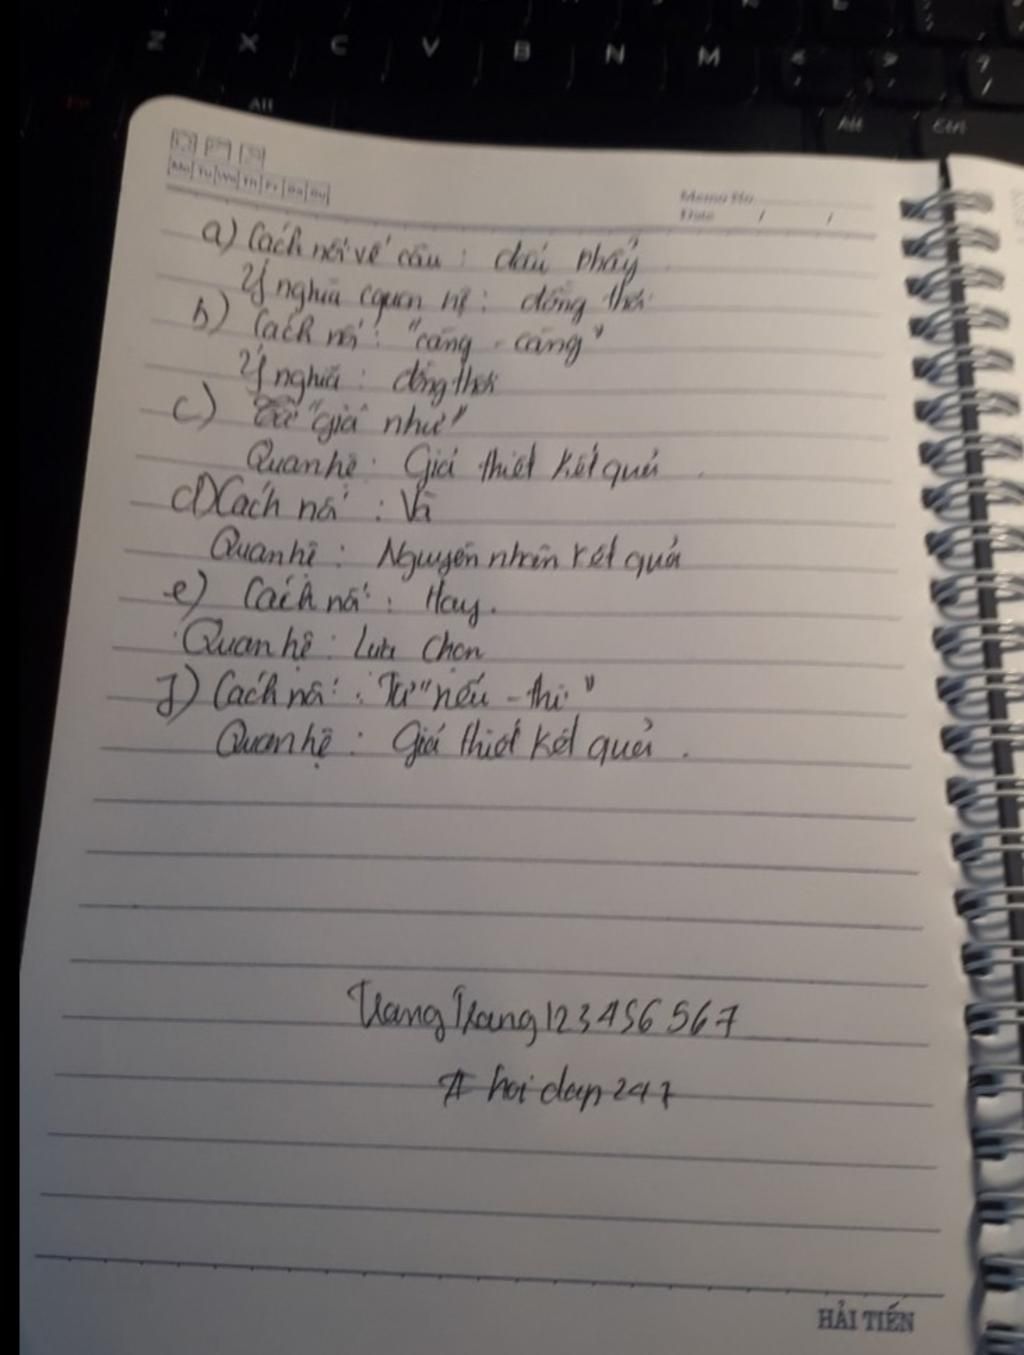 Z X C V B N M < > ?
/
Alt Alt Ctrl
Mo Tu We Th Fr Sa Su
Memo No
Date / /
a) Cách nối vế câu : dấu phẩy
Ý nghĩa quan hệ : đồng thời
b) Cách nối : "càng - càng"
Ý nghĩa : đồng thời
c) Từ "giá như"
Quan hệ : Giả thiết kết quả .
d) Cách nối : Vì
Quan hệ : Nguyên nhân kết quả
e) Cách nối : Hay.
Quan hệ : Lựa chọn
f) Cách nối : Từ "nếu - thì"
Quan hệ : Giả thiết kết quả .
TrangTrang123456567
# hoidap247
HẢI TIẾN